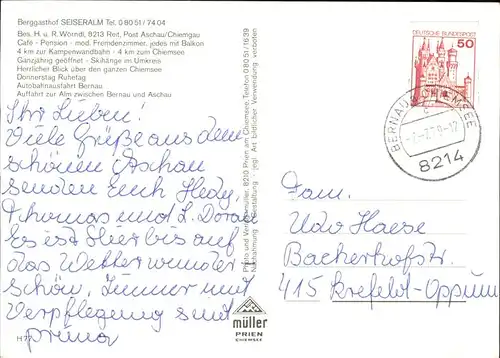 Berggasthof SEISERALM Tel. 0 80 51 / 74 04
Bes. H. u. R. Wörndl, 8213 Reit, Post Aschau/Chiemgau
Café - Pension - mod. Fremdenzimmer, jedes mit Balkon
4 km zur Kampenwandbahn - 4 km zum Chiemsee
Ganzjährig geöffnet - Skihänge im Umkreis
Herrlicher Blick über den ganzen Chiemsee
Donnerstag Ruhetag
Autobahnausfahrt Bernau
Auffahrt zur Alm zwischen Bernau und Aschau
Ihr Lieben!
Viele Grüße aus dem
schönen Aschau
senden Euch Hedy,
Thomas und L. Doran
Es ist hier bis auf
das Wetter wunder
schön, Zimmer und
Verpflegung sind
prima
H 77
Photo und Verlag müller, 8210 Prien am Chiemsee, Telefon 0 80 51 / 16 39
Nachahmung, Herstellung - jegl. Art bildlicher Verwendung verboten
müller
PRIEN
CHIEMSEE
DEUTSCHE BUNDESPOST
50
BERNAU CHIEMSEE
8214
Fam.
Udo Haese
Backerhofstr.
415 Krefeld-Oppum